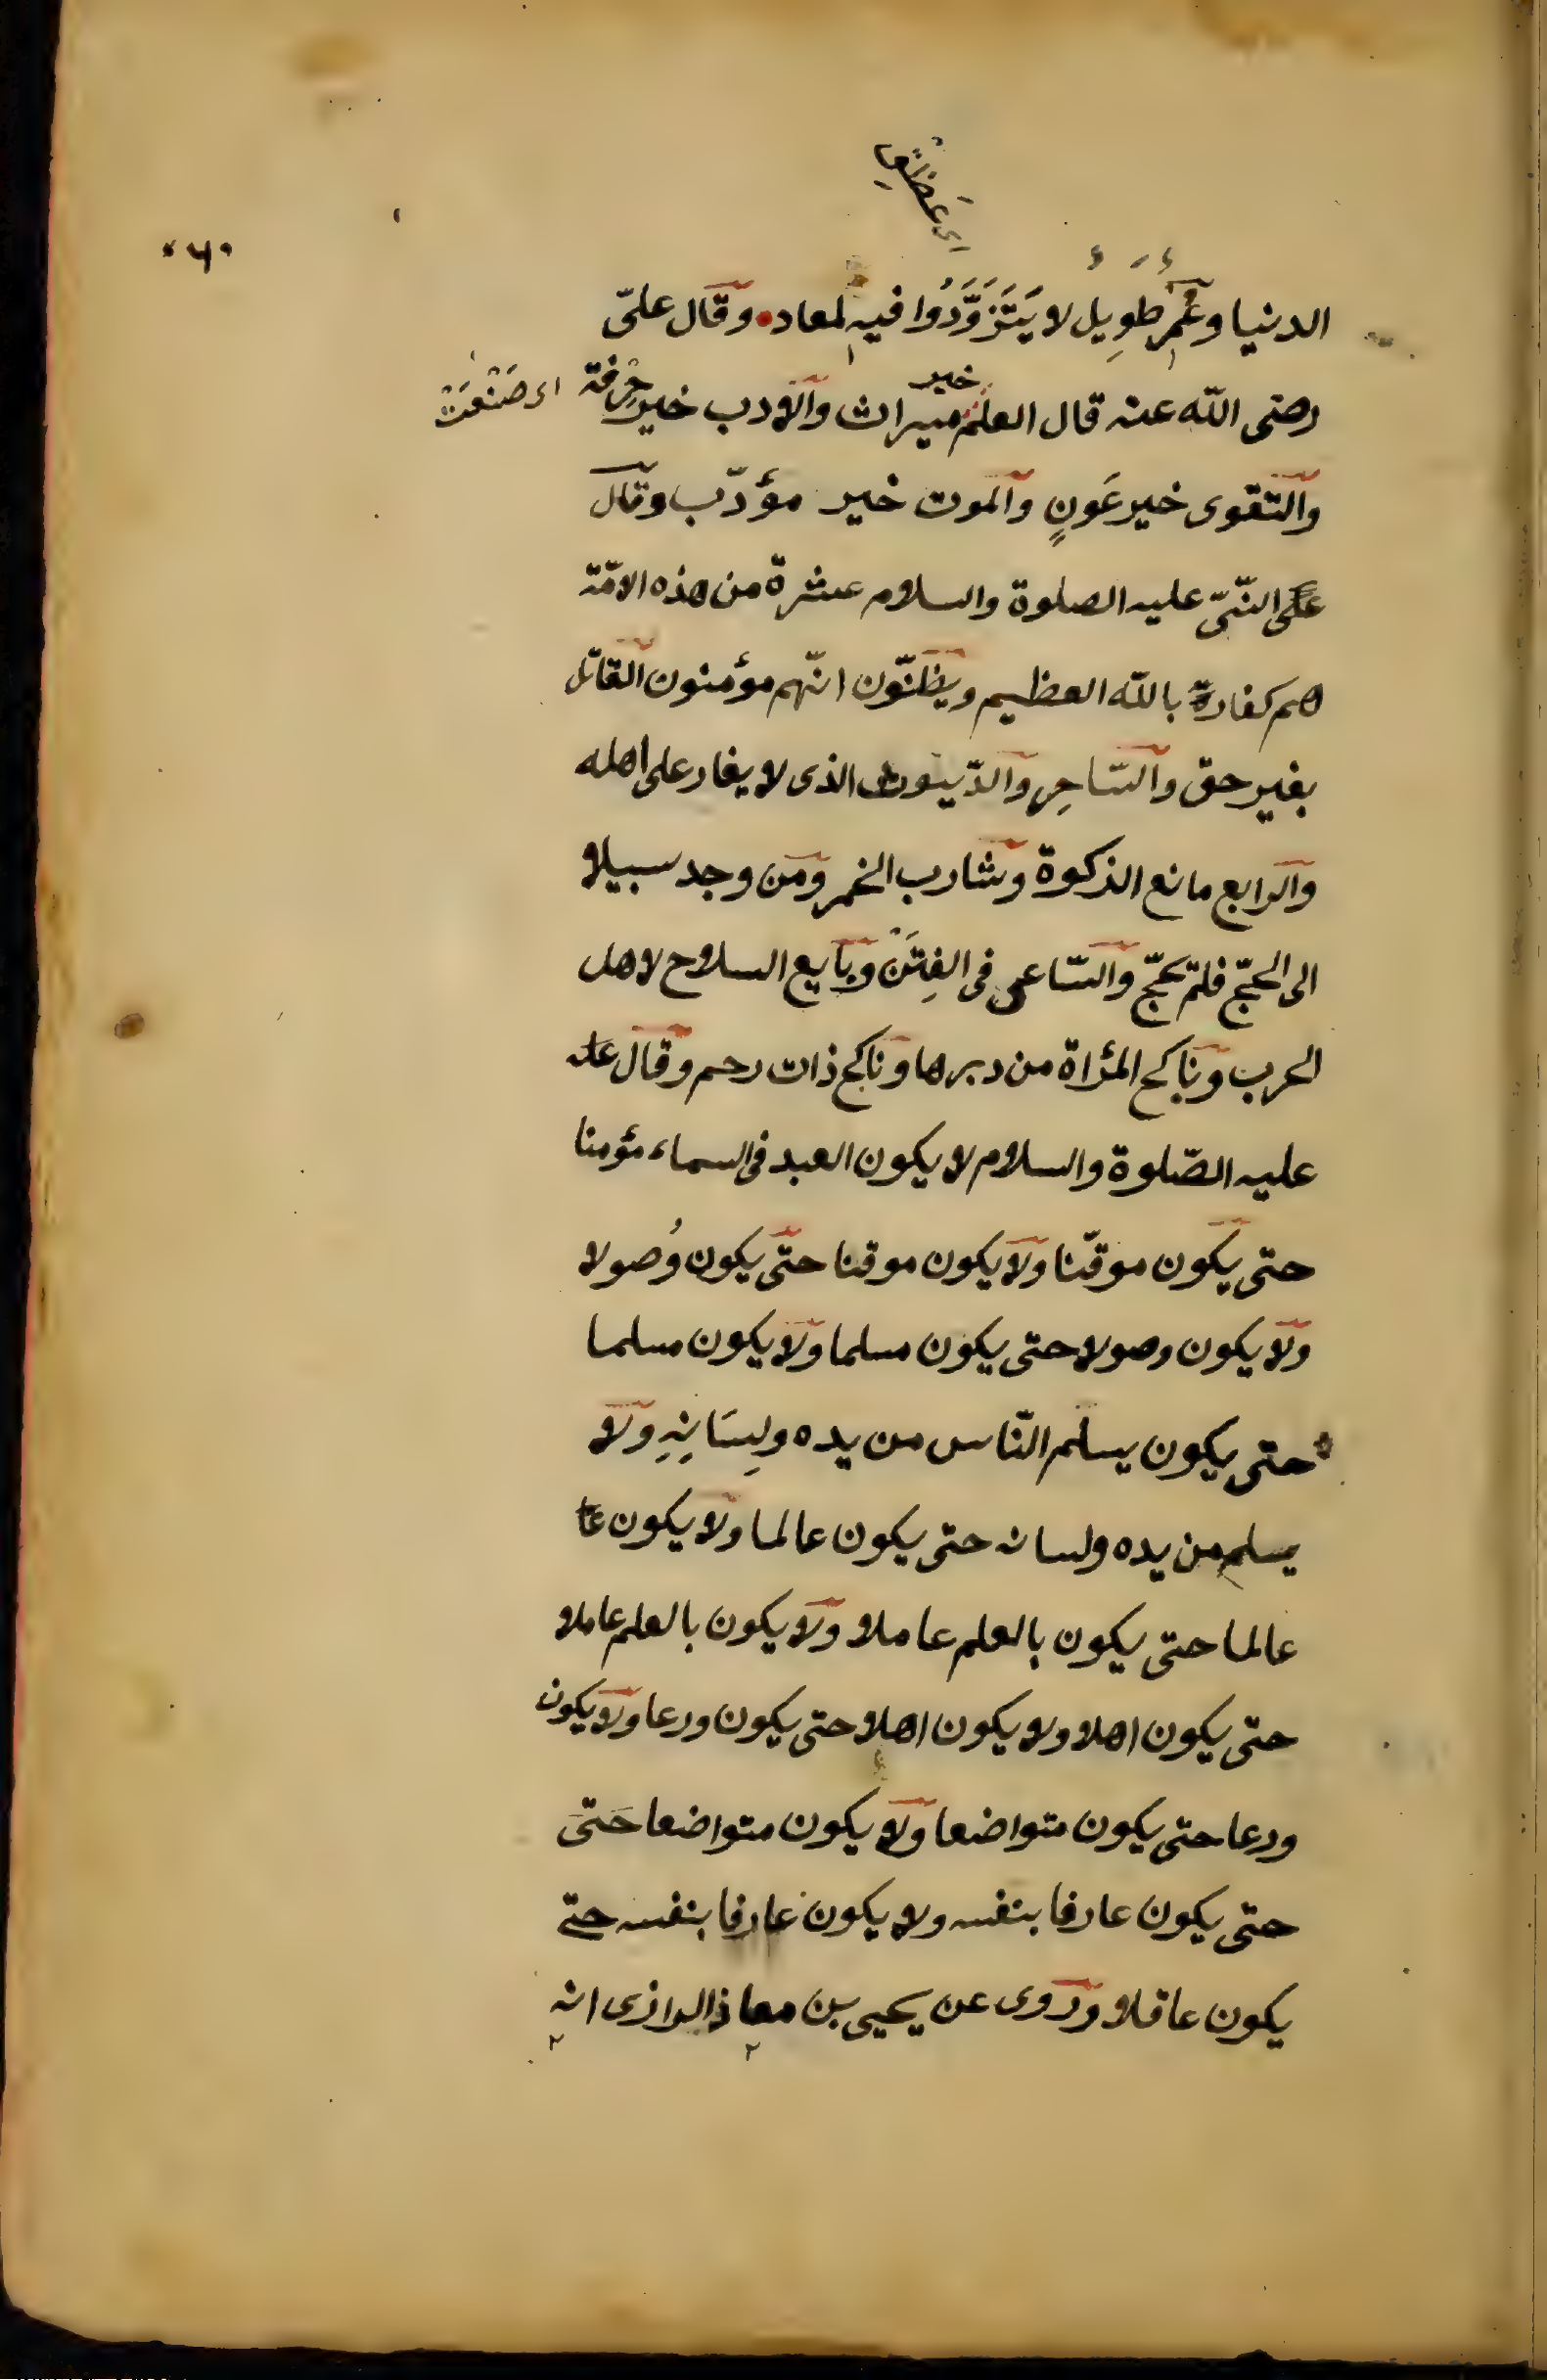 الدنيا وعُمِر طَوِيل لا يَتَزَوَّدُوا فيه لمعاد وقال علىّ
رضى الله عنه قال العلم خير ميراث والادب خير حِرفة اى صَنْعَتْ
والتقوى خير عَونٍ والموت خير مؤدّب وقال
النّبىّ عليه الصلوة والسلام عشرة من هذه الامّة
هم كفارة بالله العظيم ويظنّون انّهم مؤمنون القاتل
بغير حق والسّاحِر والدّيّوث الذى لا يغار على اهله
والرابع مانع الذكوة وشارب الخمر ومن وجد سبيلا
الى الحجّ فلم يحجّ والسّاعى فى الفِتَنْ وبايع السلاح لاهل
الحرب وناكح المرٔاة من دبرها وناكح ذات رحم وقال عله
عليه الصّلوة والسلام لا يكون العبد فى السماء مؤمنا
حتى يكون موقنا ولا يكون موقنا حتّى يكون وُصولا
ولا يكون وصولا حتى يكون مسلما ولا يكون مسلما
حتى يكون يسلم النّاس من يده ولِسَانِهِ ولا
يسلم من يده ولسانه حتى يكون عالما ولا يكون عا
عالما حتى يكون بالعلم عاملا ولا يكون بالعلم عاملا
حتى يكون اهلا ولا يكون اهلا حتى يكون ورعا ولا يكون
ورعا حتى يكون متواضعا ولا يكون متواضعا حَتىَ
حتى يكون عارفا بنفسه ولا يكون عارفا بنفسه حتى
يكون عاقلا وروى عن يحيى بن معاذ الرازى انه